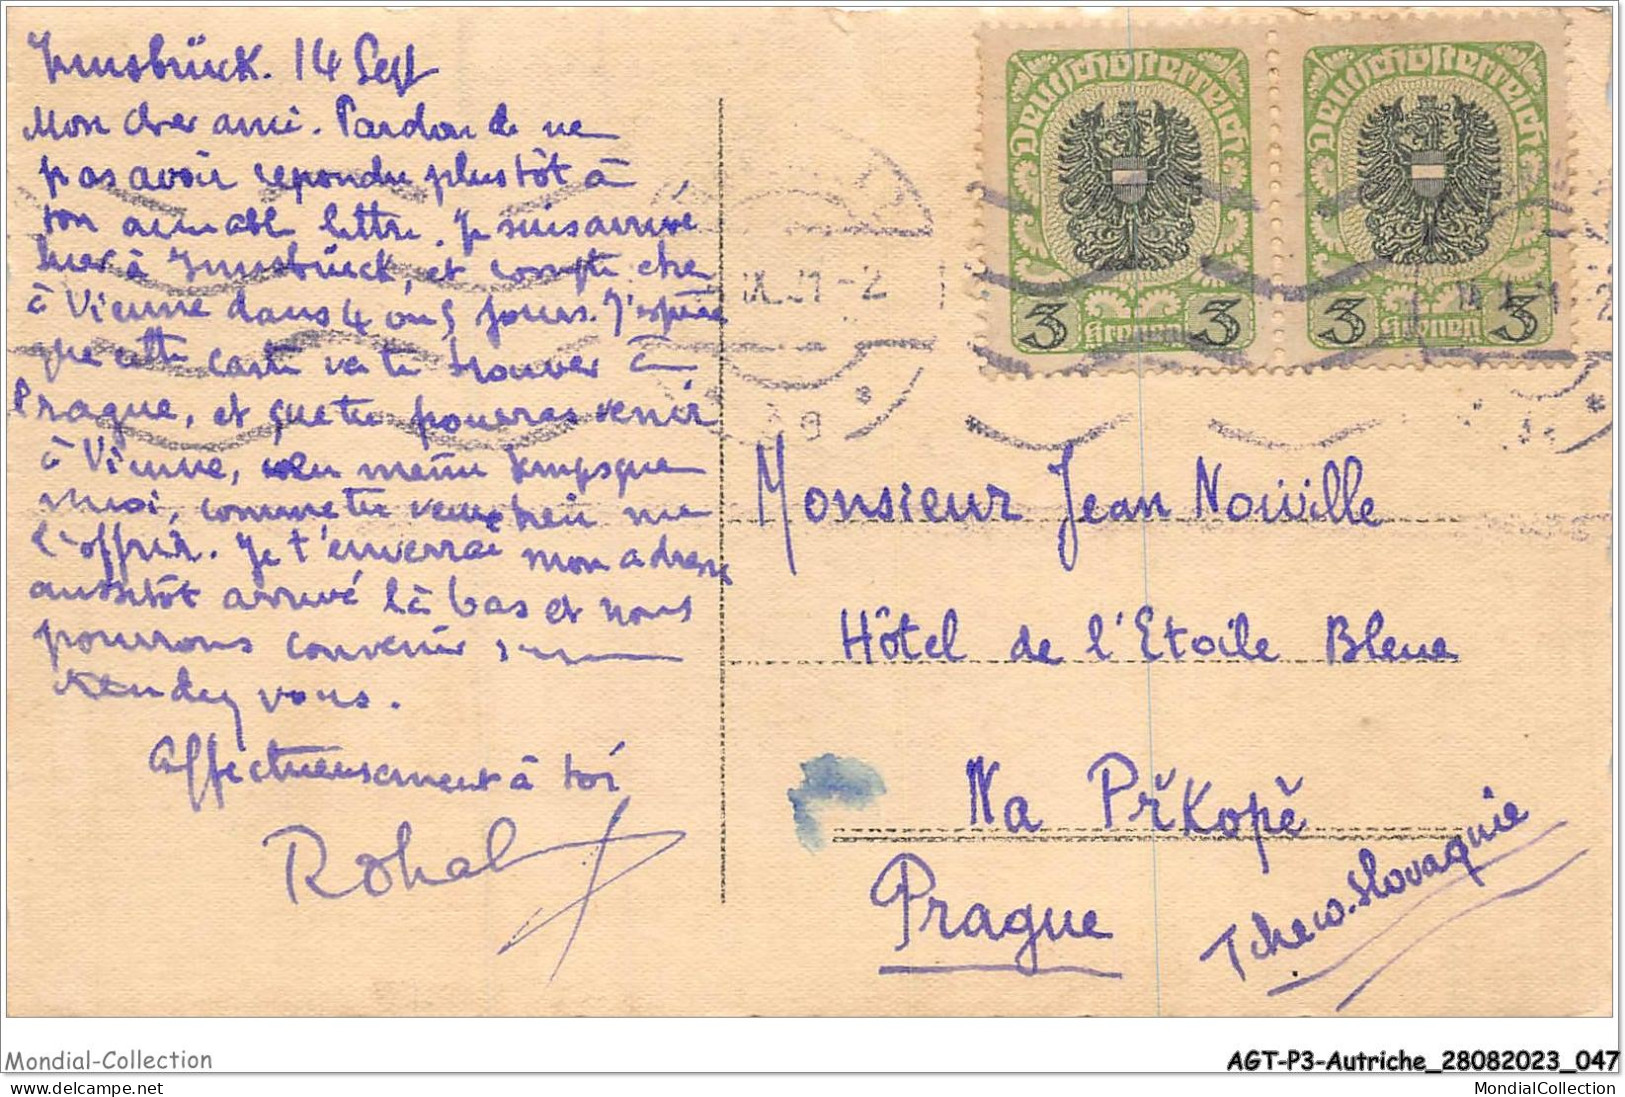 Innsbrück. 14 Sept
Mon cher ami. Pardon de ne
pas avoir repondu plustôt à
ton aimable lettre. Je suis arrivé
hier à Innsbrück, et compte etre
à Vienne dans 4 ou 5 jours. J'espère
que cette carte va te trouver à
Prague, et que tu pourras venir
à Vienne, en meme temps que
moi, comme tu veux bien me
l'offrir. Je t'enverrai mon adresse
aussitôt arrivé là bas et nous
pourrons convenir
rendez vous.
Affectueusement à toi
Rohal
Deutschösterreich
3 Kronen 3
Deutschösterreich
3 Kronen 3
IX.21-2
Monsieur Jean Nouville
Hôtel de l'Etoile Bleue
Na Příkopě
Prague
Tcheco-Slovaquie
Mondial-Collection
AGT-P3-Autriche_28082023_047
delcampe.net
MondialCollection